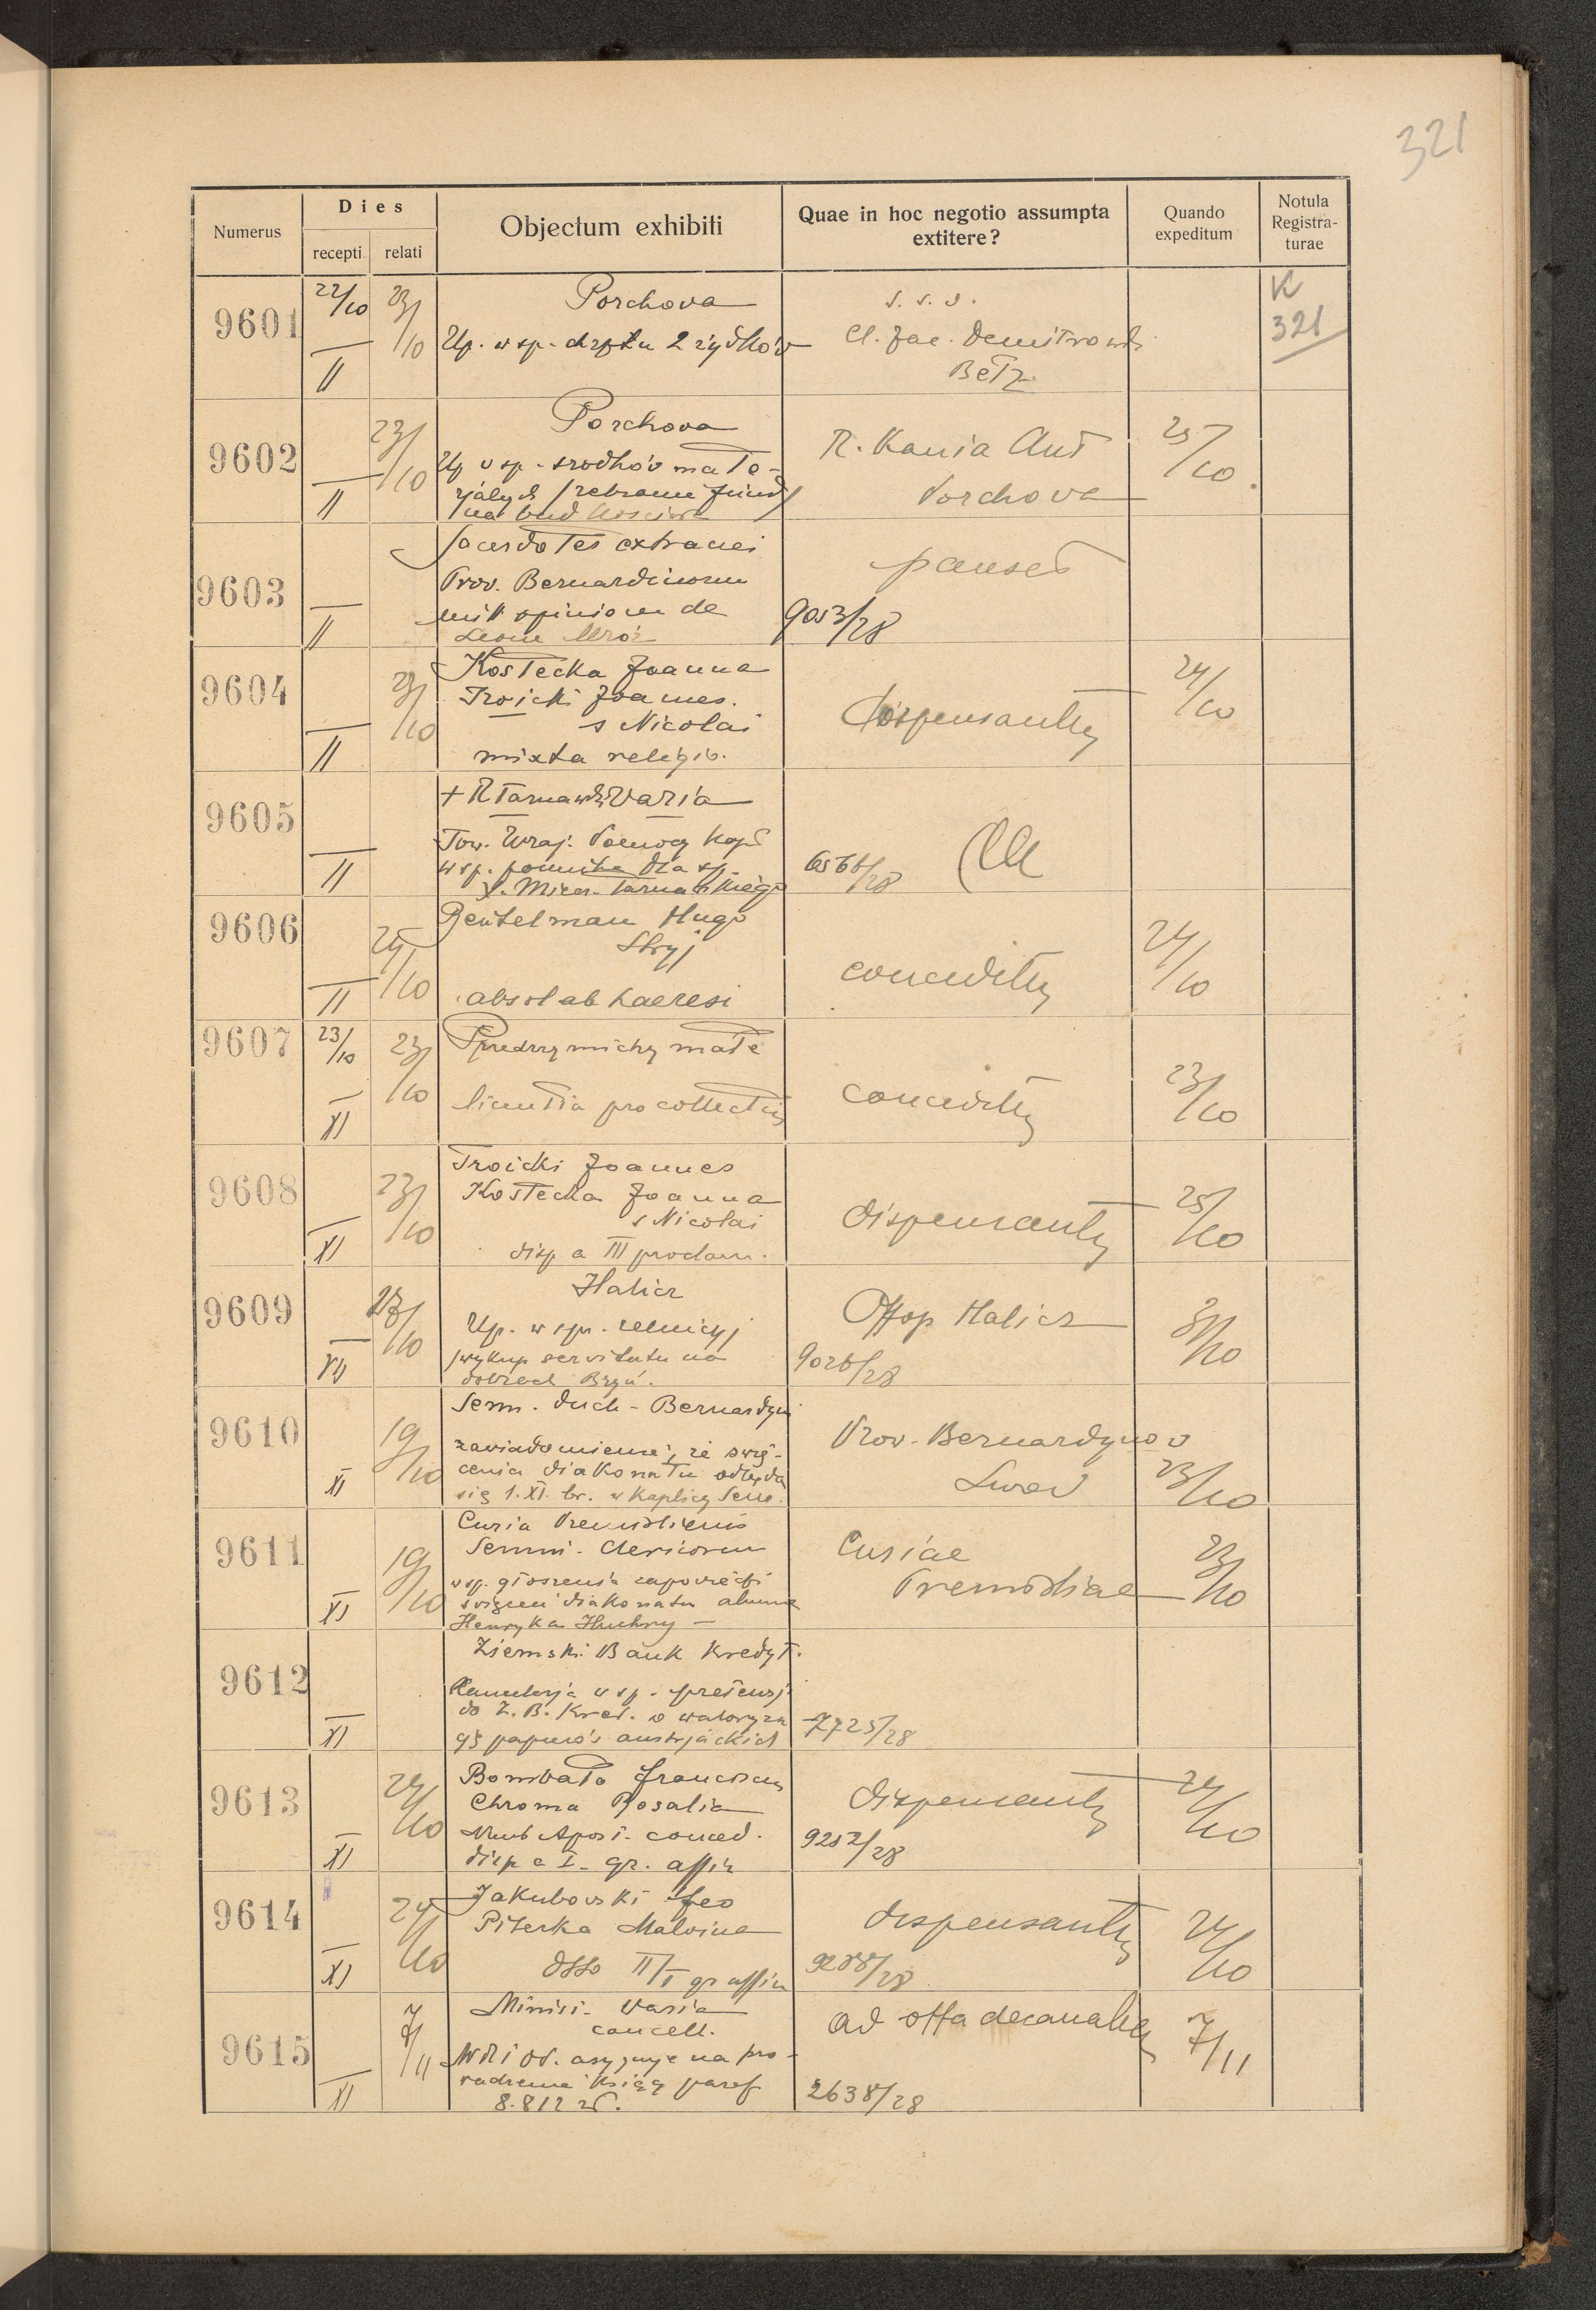 321
Numerus
Dies
recepti
relati
Objectum exhibiti
Quae in hoc negotio assumpta
extitere?
Quando
expeditum
Notula
Registra-
turae
9601
22/10
23/10
II
Porchova
Up. w sp. chrztu 2 żydków
s. s. s.
Bełz
K
321
9602
23/10
II
Porchova
Up w sp. środków mate-
rjalnych
na bud kościoła
R. Kania Ant
Porchova
25/10
9603
II
Sacerdotes extranei
Prov. Bernardinorum
mitt opinionem de
Leone Mróz
pauset
9053/28
9604
23/10
II
Kostecka Joanna
Troicki Joannes.
s Nicolai
mixta religio.
dispensantur
24/10
9605
II
+ R Tarnawski Varia
Tow. Wzaj. Pomocy Kapł
w sp. pomnika dla śp.
x. Miecz. Tarnawskiego
6566/28
9606
24/10
II
Beutelman Hugo
Stryj
absol ab haeresi
conceditur
24/10
9607
23/10
23/10
XI
Przedrzymichy małe
licentia pro collectis
conceditur
23/10
9608
23/10
XI
Troicki Joannes
Kostecka Joanna
s Nicolai
disp a III proclam.
dispensantur
25/10
9609
23/10
XI
Halicz
Up. w spr.
wykup servitutu na
dobrach
Offop Halicz
9026/28
9610
19/10
XI
Sem. duch - Bernardyni
zawiadomienie, że świę-
cenia diakonatu odbędą
się 1.XI. br. w kaplicy Sem.
Prov. Bernardynów
Lwow
23/10
9611
19/10
XI
Curia Premisliensis
Semin. Clericorum
w sp. głoszenia zapowiedzi
święceń diakonatu alumna
Henryka
Curiae
Premisliae
23/10
9612
XI
Ziemski Bank Kredyt.
w sp. pretensji
do Z. B. Kred. o waloryza
cję papierów austrjackich
7725/28
9613
24/10
XI
Bombała Franciscus
Chroma Rosalia
Nunt Apost. conced.
disp a I gr. affin
dispensantur
9252/28
24/10
9614
24/10
XI
Jakubowski Leo
Piterka Malvina
dtto II/I gr affin
dispensantur
9288/28
24/10
9615
7/11
XI
Minist. Varia
cancell.
W R i OP. asygnuje na pro-
wadzenie ksiąg paraf
8.812 zł.
ad offa decanalia
2638/28
7/11